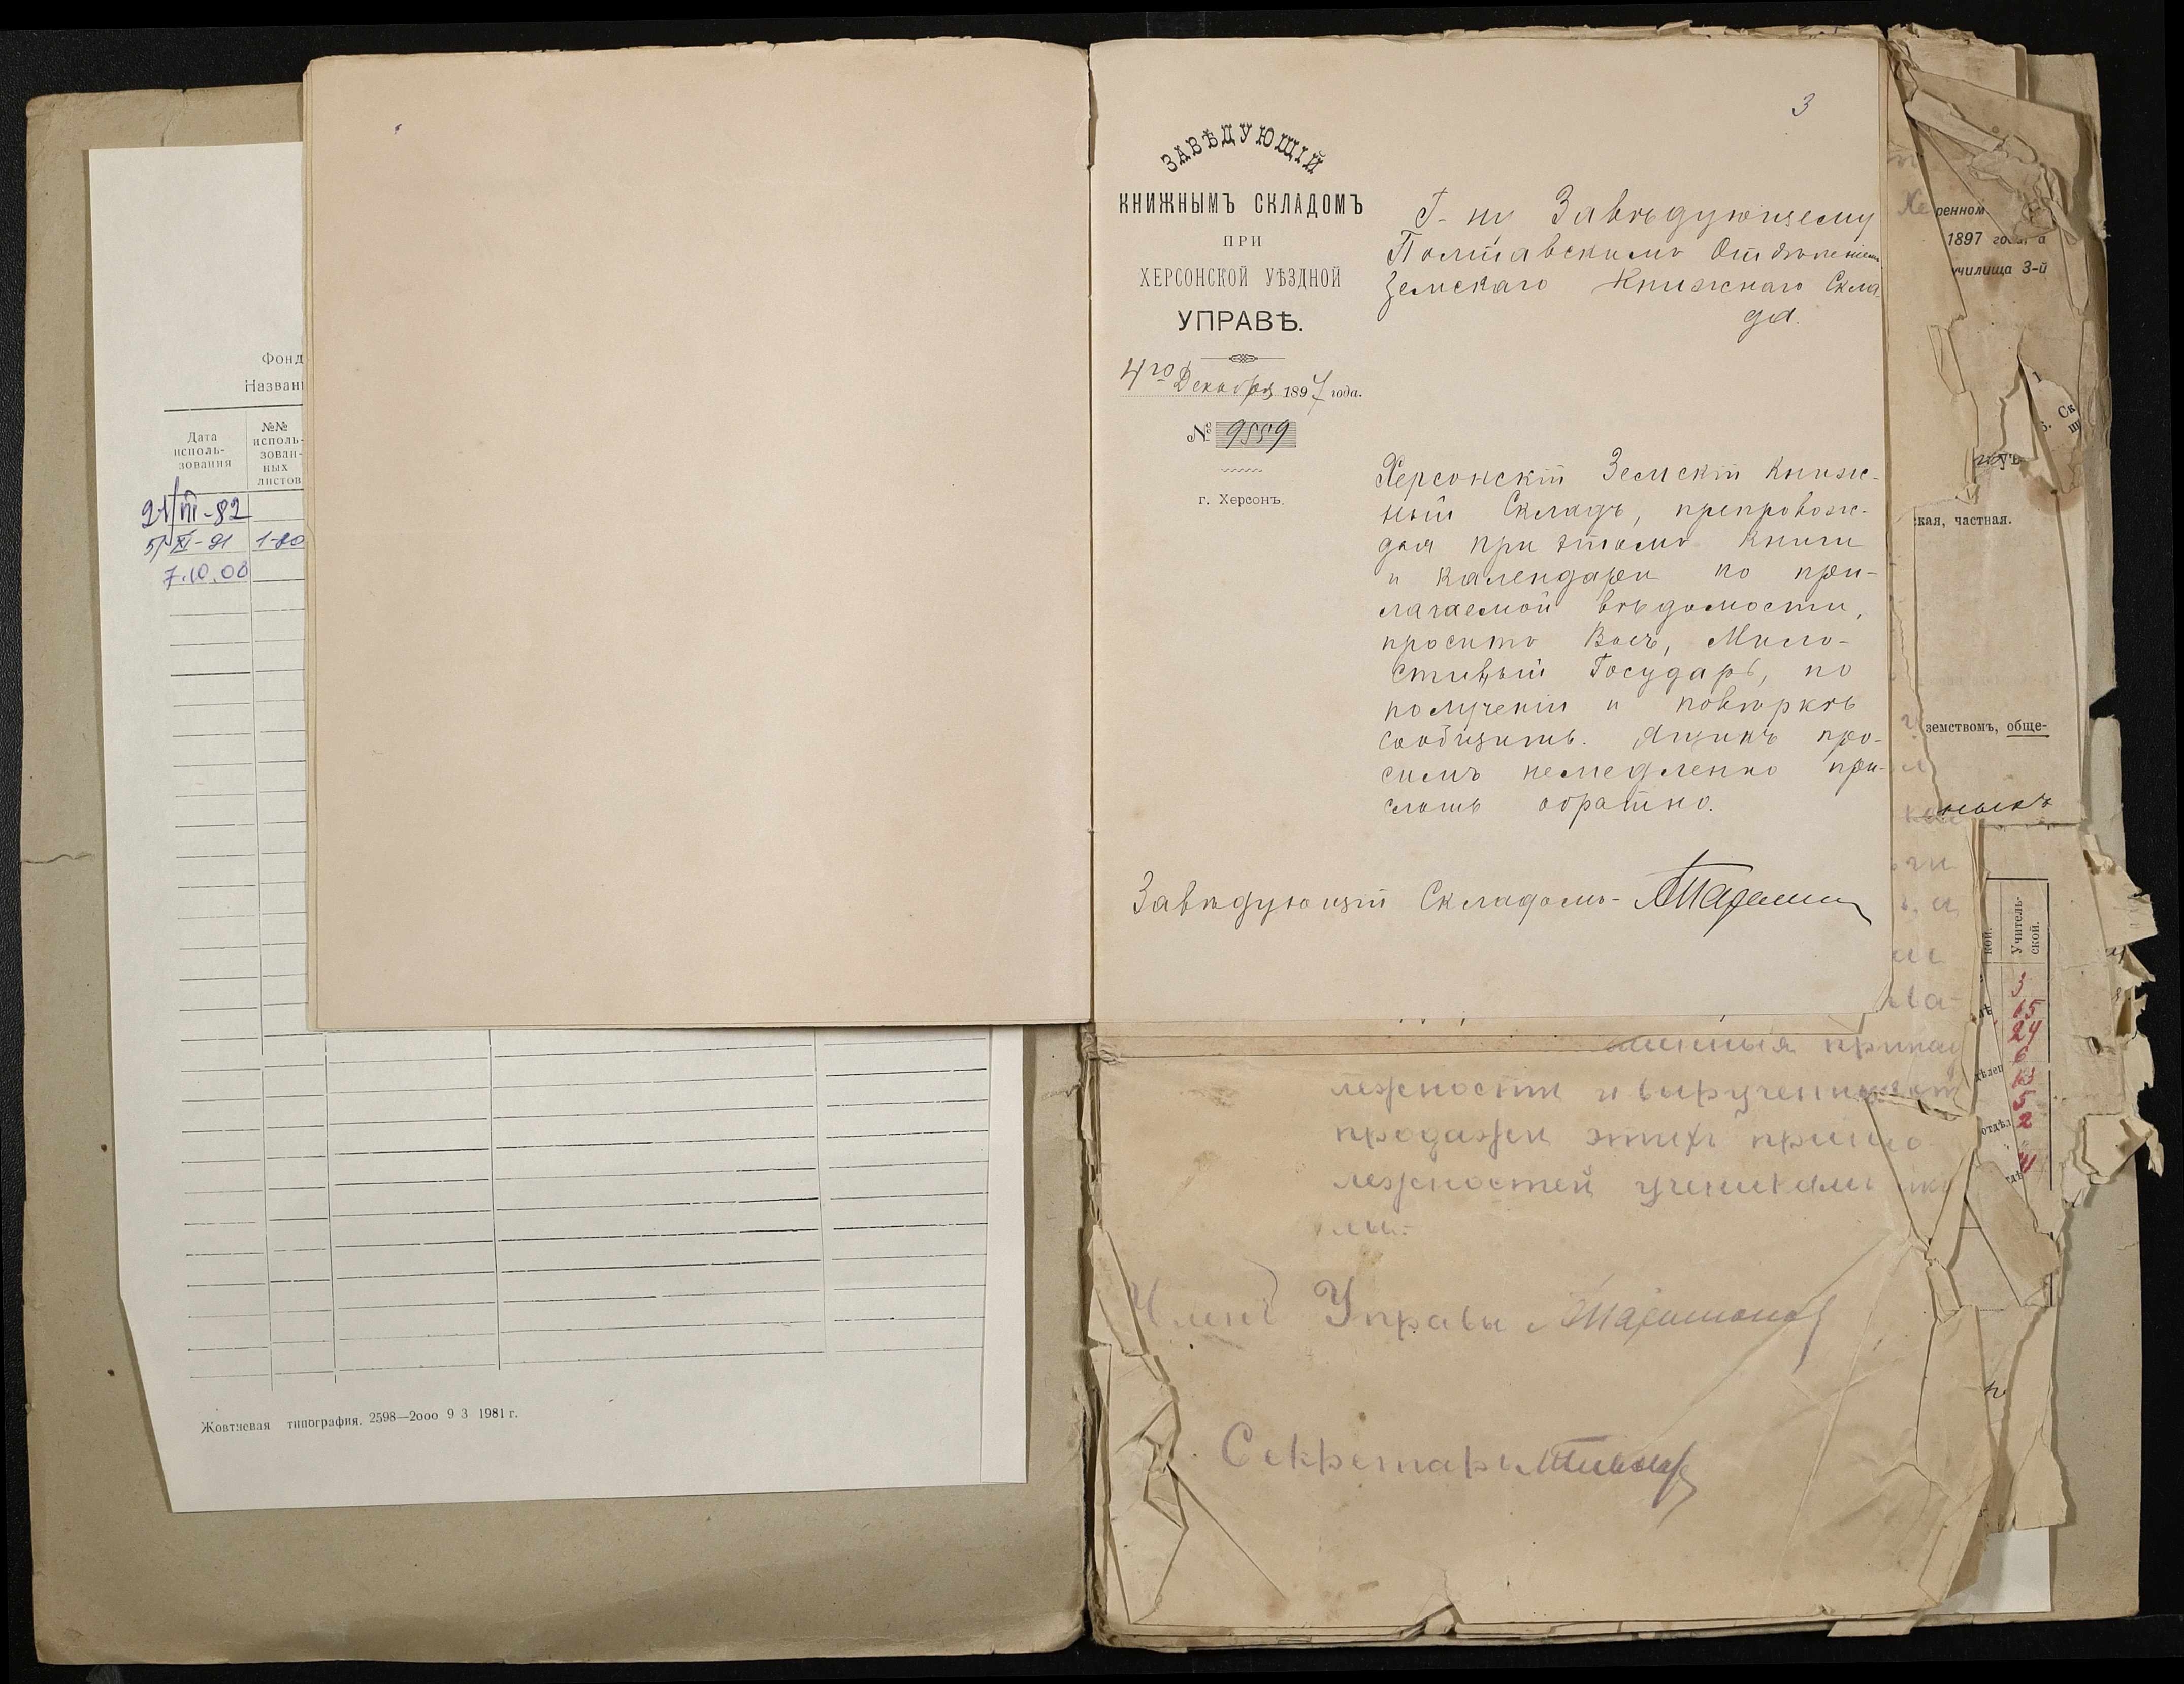 Фонд
Назван
Дата исполь-зования
№№ исполь-зован-ных листов
21/VII-82
5/XI-91 1-80
7.10.08
Жовтневая типография. 2598—2000 9 3 1981 г.
3
ЗАВѢДУЮЩІЙ
КНИЖНЫМЪ СКЛАДОМЪ
ПРИ
ХЕРСОНСКОЙ УѢЗДНОЙ
УПРАВѢ.
4го Декабря 1897 года.
№ 9559
г. Херсонъ.
Г-ну Завѣдующему
Полтавскимъ Отдѣленіем
Земскаго Книжнаго Скла
да.
Херсонскій Земскій Книж-
ный Складъ, препровож-
дая при этомъ книги
и календари по при-
лагаемой вѣдомости,
проситъ Васъ, Мило-
стивый Государь, по
полученіи и повѣркѣ
сообщить. Ящикъ про-
симъ немедленно при-
слать обратно.
Завѣдующій Складомъ-
ренном
1897
училища 3-й
ская, частная.
земствомъ, обще-
Учитель-ской.
кой.
3
15
24
6
13
5
2
4
отдѣл
лежности и вырученны
продажи этихъ прина
лежностей ученикамъ
Членъ Управы
Секретарь